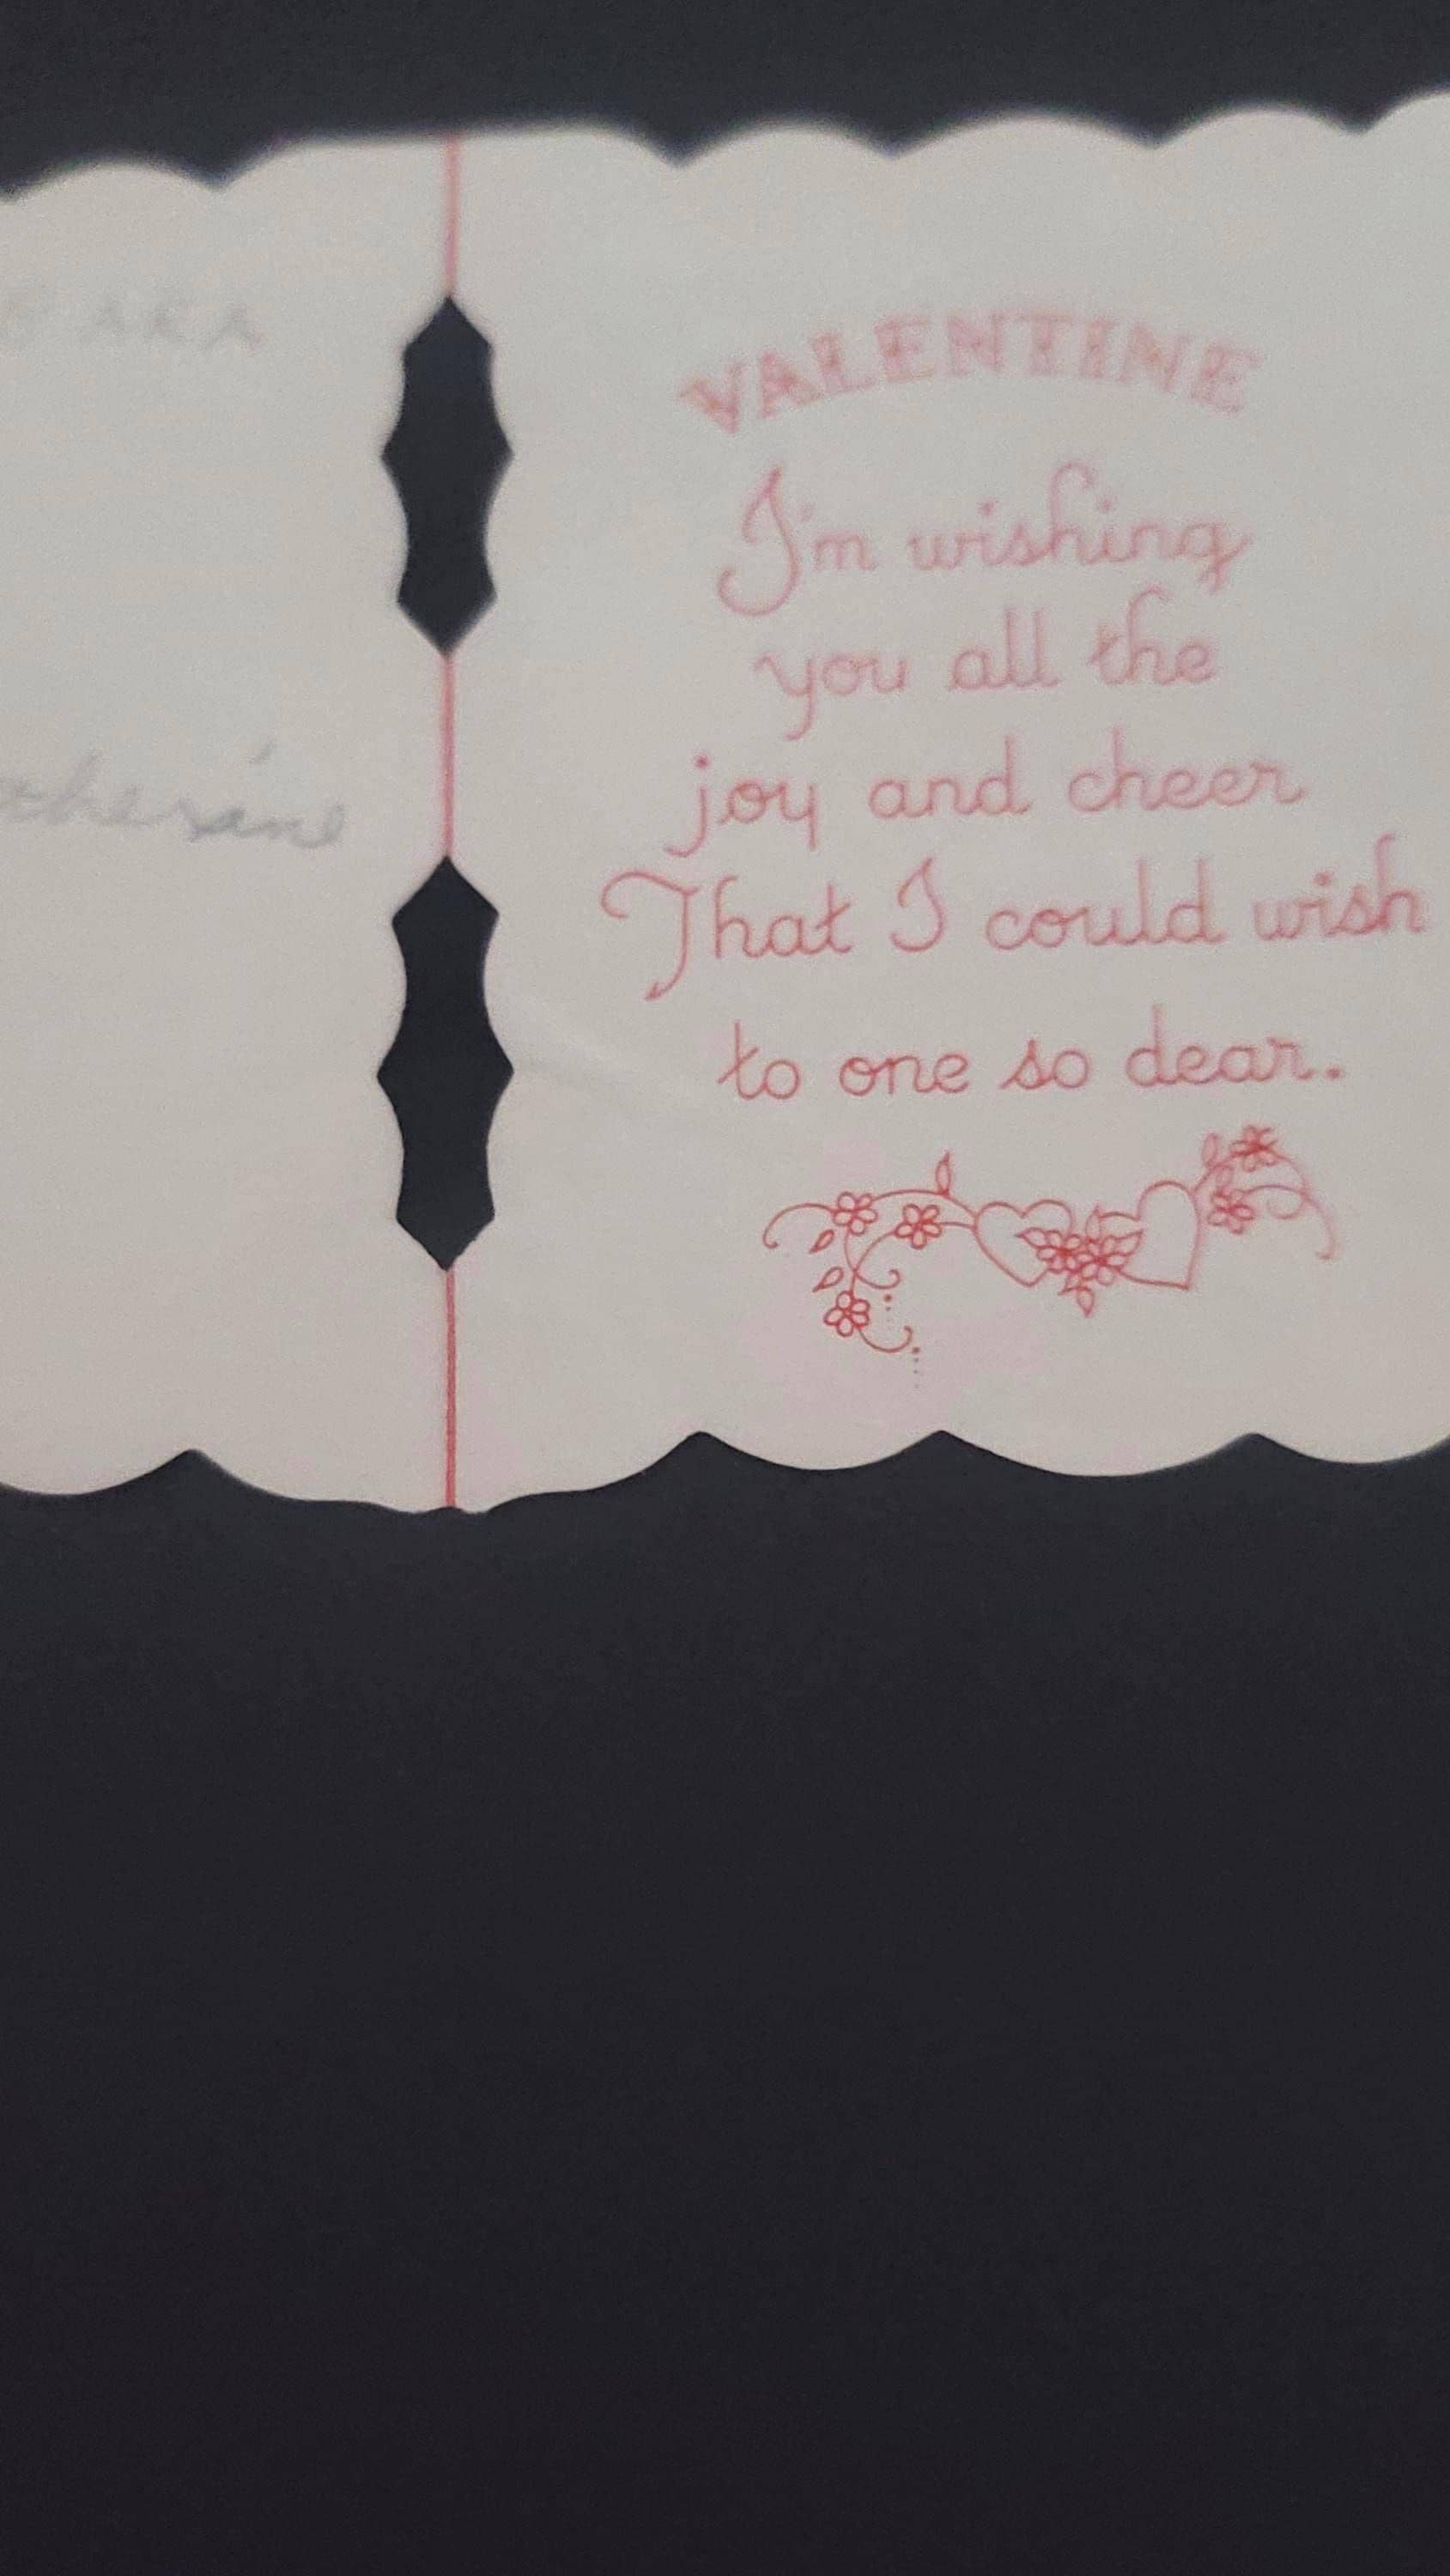 VALENTINE
I'm wishing
you all the
joy and cheer
That I could wish
to one so dear.